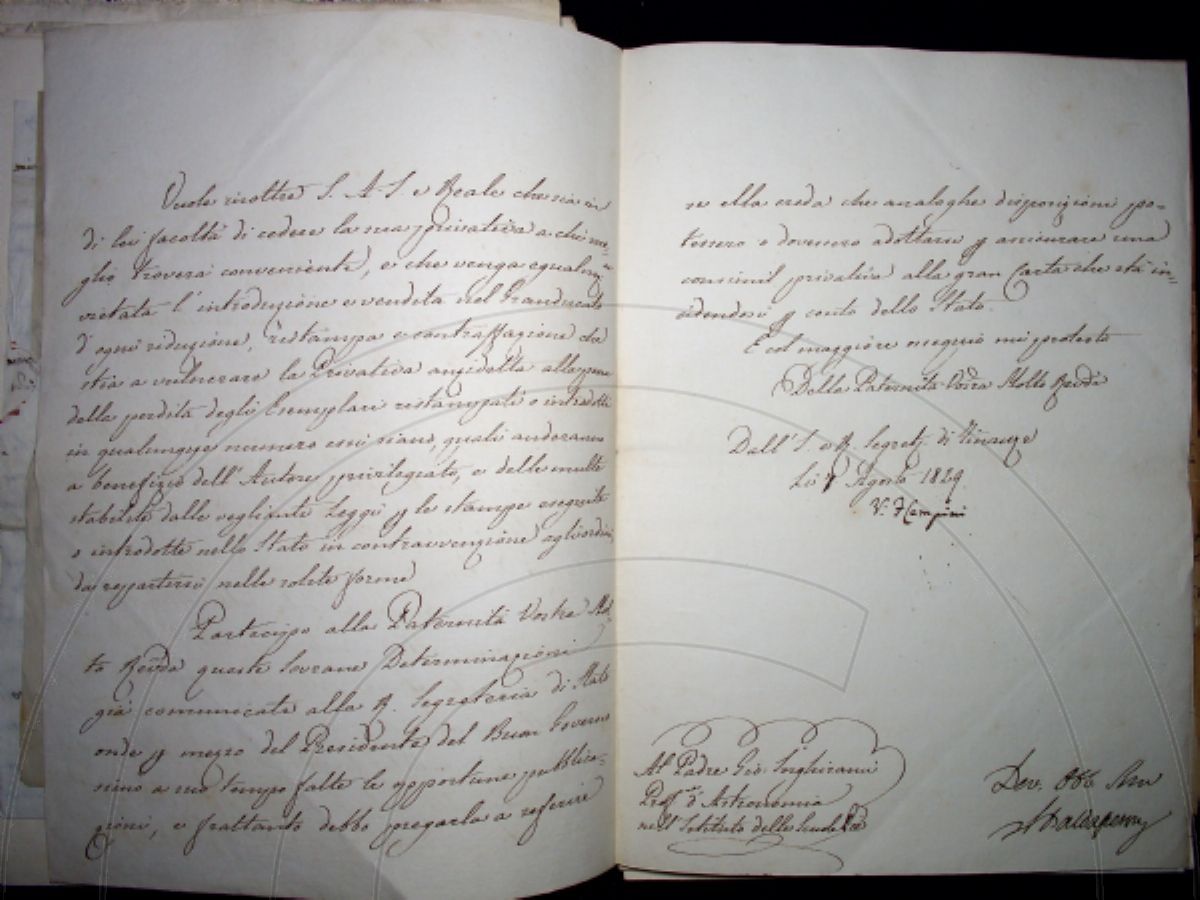 Vuole inoltre S. A. I. e Reale che sia in
di lei facoltà di cedere la sua privativa a chi me=
glio troverà conveniente, e che venga egualm.e
vietata l'introduzione e vendita nel Granducato
d'ogni riduzione, ristampa e contraffazione che
stia a vulnerare la Privativa anzidetta alla pena
della perdita degli Esemplari ristampati o introdotti
in qualunque numero essi siano, quali anderanno
a benefizio dell'Autore privilegiato, e delle multe
stabilite dalle veglianti Leggi p le stampe eseguite
o introdotte nello Stato in contravvenzione agli ordini
da repartirsi nelle solite forme
Partecipo alla Paternità Vostra Mol
to Revda queste Sovrane Determinazioni
già comunicate alla R. Segreteria di Stato
onde p mezzo del Presidente del Buon Governo
sieno a suo tempo fatte le opportune pubblica=
zioni, e frattanto debbo pregarla a referire
se ella creda che analoghe disposizioni po=
tessero e dovessero adottarsi p assicurare una
consimil privativa alla gran Carta che stà in=
cidendosi p conto dello Stato.
E col maggiore ossequio mi protesto
Della Paternità Vostra Molto Revda
Dall' I. e R. Segret. di Finanze
Li 7 Agosto 1829
Al Padre Gio. Inghirami
Prof.re d'Astronomia
nell'Istituto delle Scuole Pie
Dev. Obb. Serv